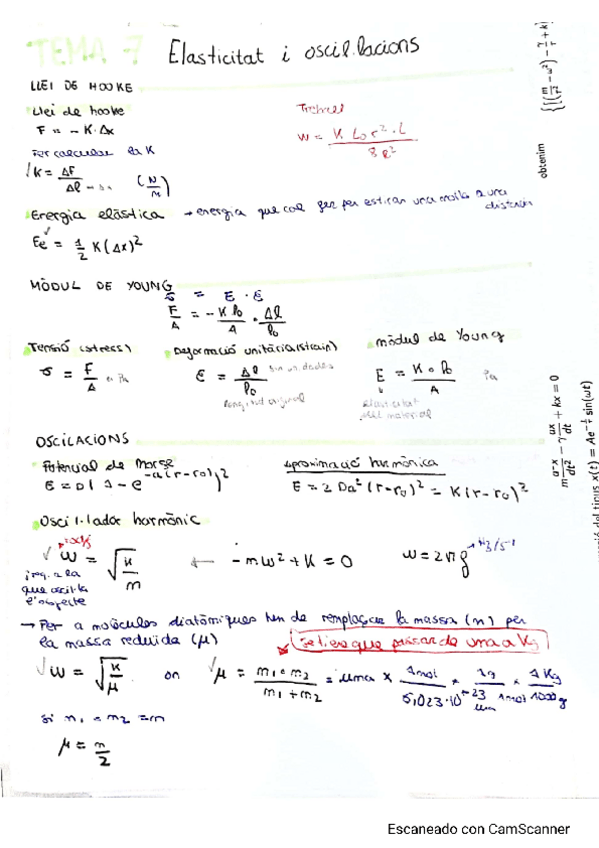 TEMA 7 Elasticitat i oscil·lacions
LLEI DE HOOKE
Llei de hooke
F = - K·Δx
Per calcular la K
K = ΔF / Δl (N/m)
W = K L₀ r² · L / 8 R²
Energia elàstica → energia que cal fer per estirar una molla a una distància
Ee = 1/2 K (Δx)²
MÒDUL DE YOUNG
σ = E · ε
F/A = - K l₀/A · Δl/l₀
Tensió (stress)
σ = F/A Pa
Deformació unitària (strain)
ε = Δl/l₀ sin unidades
longitud original
mòdul de Young
E = K · l₀ / A Pa
Elasticitat del material
OSCILACIONS
Potencial de Morse
E = D(1 - e^-a(r-r₀))²
aproximació harmònica
E = 2Da²(r-r₀)² = K(r-r₀)²
Oscil·lador harmònic
W = √(K/m) ← -mw² + K = 0
freq. a la que oscil·la l'objecte
→ Per a molècules diatòmiques hem de remplaçar la massa (m) per
la massa reduida (μ) se tiene que pasar de uma a Kg
W = √(K/μ) on μ = m₁ · m₂ / m₁ + m₂ = uma ×
si m₁ = m₂ = m
μ = m/2
obtenim
Escaneado con CamScanner